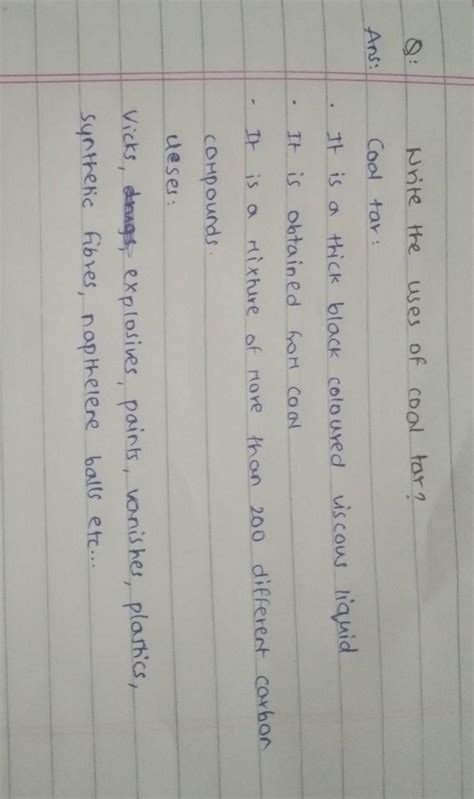 Q: Write the uses of coal tar?
Ans: Coal tar:
· It is a thick black coloured viscous liquid
· It is obtained from coal
· It is a mixture of more than 200 different carbon
compounds.
Uses:
Vicks, drugs, explosives, paints, vanishes, plastics,
synthetic fibres, napthelene balls etc...